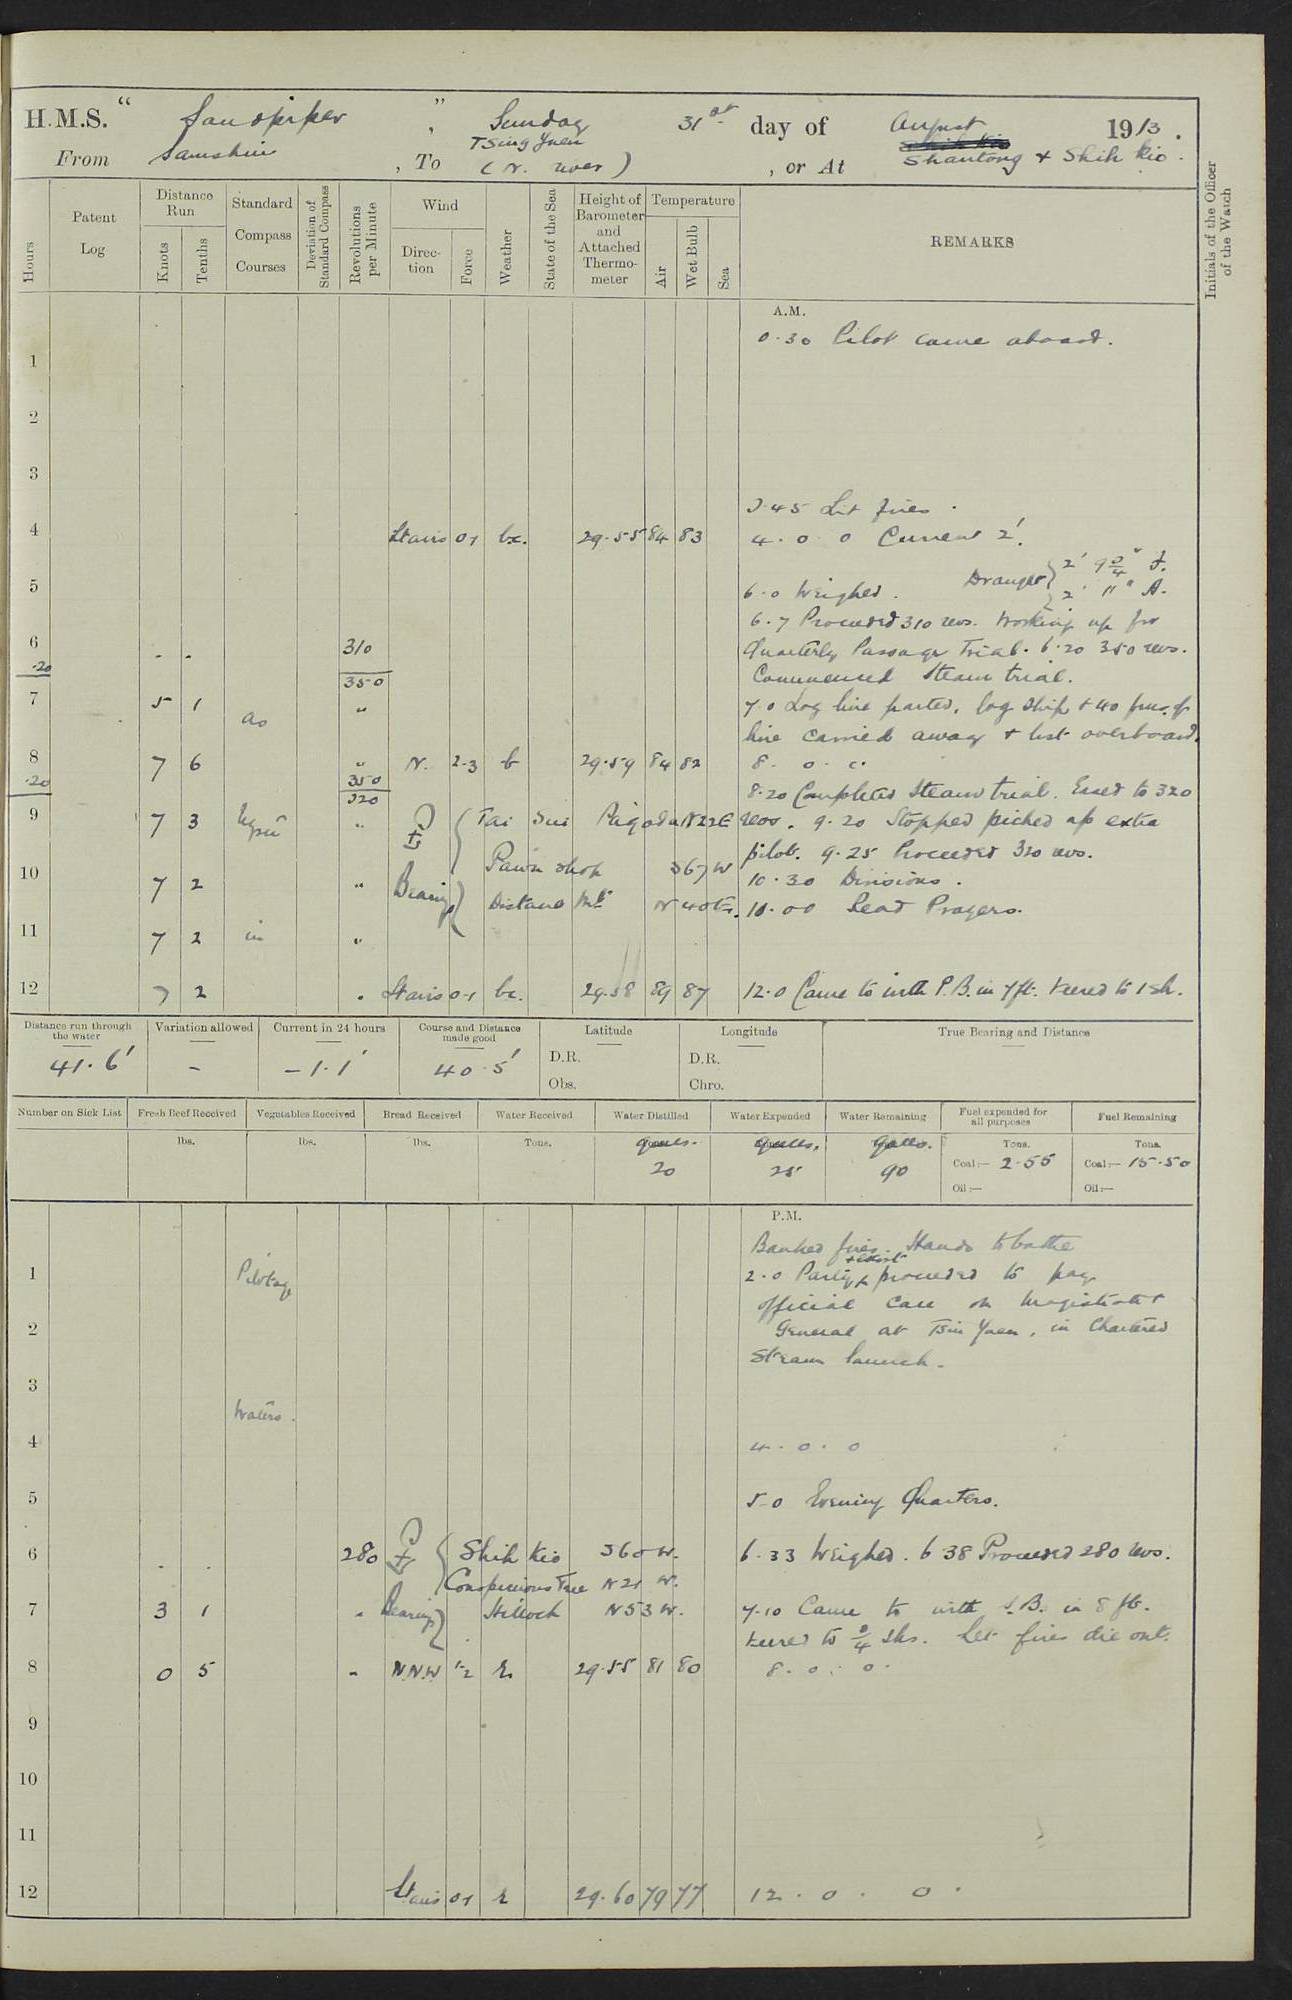 H.M.S. "Sandpiper", Sunday 31st day of August 1913.
From Samshui, To Tsing Yuen (N. river), or At Shantong + Shih Kio.
Hours
Patent Log
Distance Run
Knots
Tenths
Standard Compass Courses
Deviation of Standard Compass
Revolutions per Minute
Wind
Direction
Force
Weather
State of the Sea
Height of Barometer and Attached Thermometer
Temperature
Air
Wet Bulb
Sea
REMARKS
Initials of the Officer of the Watch
A.M.
0.30 Pilot came aboard.
1
2
3
3.45 Lit fires.
4 Stairs 0-1 bc. 29.55 84 83 4.0 0 Current 2'.
Draught { 2' 9 3/4" F.
5 6.0 Weighed. 2' 11" A.
6.7 Proceeded 310 revs. Working up for
6 - - 310 Quarterly Passage Trial. 6.20 350 revs.
.20 350 Commenced Steam trial.
7 5 1 as " 7.0 Log line parted, log ship + 40 fms. of
line carried away + lost overboard.
8 7 6 " N. 2-3 b 29.59 84 82 8. 0. c.
.20 350 8.20 Completed Steam trial. Eased to 320
320
9 7 3 " Tai Sui Pagoda N22E revs. 9.20 Stopped picked up extra
Pawn shop S67W pilot. 9.25 Proceeded 320 revs.
10 7 2 " Bearings 10.30 Divisions.
Distant Mt. N40E. 10.00 Read Prayers.
11 7 2 in "
12 7 2 " Stairs 0-1 bc. 29.58 89 87 12.0 Came to with P.B. in 7 ft. veered to 1 sh.
Distance run through the water
41.6'
Variation allowed
-
Current in 24 hours
-1.1'
Course and Distance made good
40.5'
Latitude
D.R.
Obs.
Longitude
D.R.
Chro.
True Bearing and Distance
Number on Sick List
Fresh Beef Received
lbs.
Vegetables Received
lbs.
Bread Received
lbs.
Water Received
Tons.
Water Distilled
galls.
20
Water Expended
galls.
25
Water Remaining
galls.
90
Fuel expended for all purposes
Tons.
Coal:— 2.55
Oil:—
Fuel Remaining
Tons.
Coal:— 15.50
Oil:—
P.M.
Banked fires. Hands to bathe
+ escort
1 Pilotage 2.0 Party proceeded to pay
official call on Magistrate +
2 General at Tsin Yuen, in Chartered
Steam launch.
3
Waters.
4 4. 0. 0
5 5-0 Evening Quarters.
6 - - 280 Shih Kio S60W. 6.33 Weighed. 6.38 Proceeded 280 revs.
Conspicuous Tree N21W.
7 3 1 " Bearings Hillock N53W. 7.10 Came to with S.B. in 8 ft.
veered to 3/4 shs. Let fires die out.
8 0 5 " N.N.W 1-2 29.55 81 80 8. 0. 0.
9
10
11
12 Stairs 0-1 29.60 79 77 12. 0. 0.